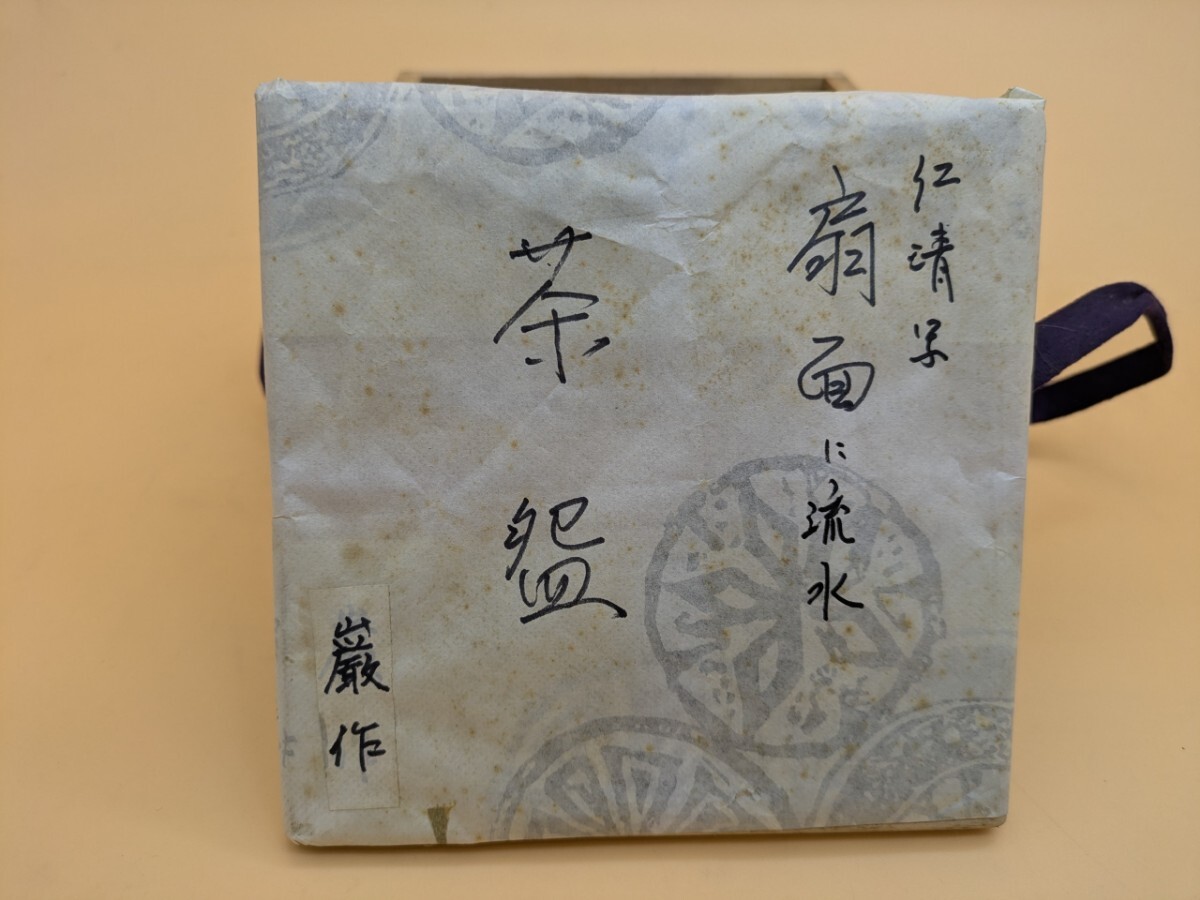 仁清写
扇面に流水
茶盌
巌作